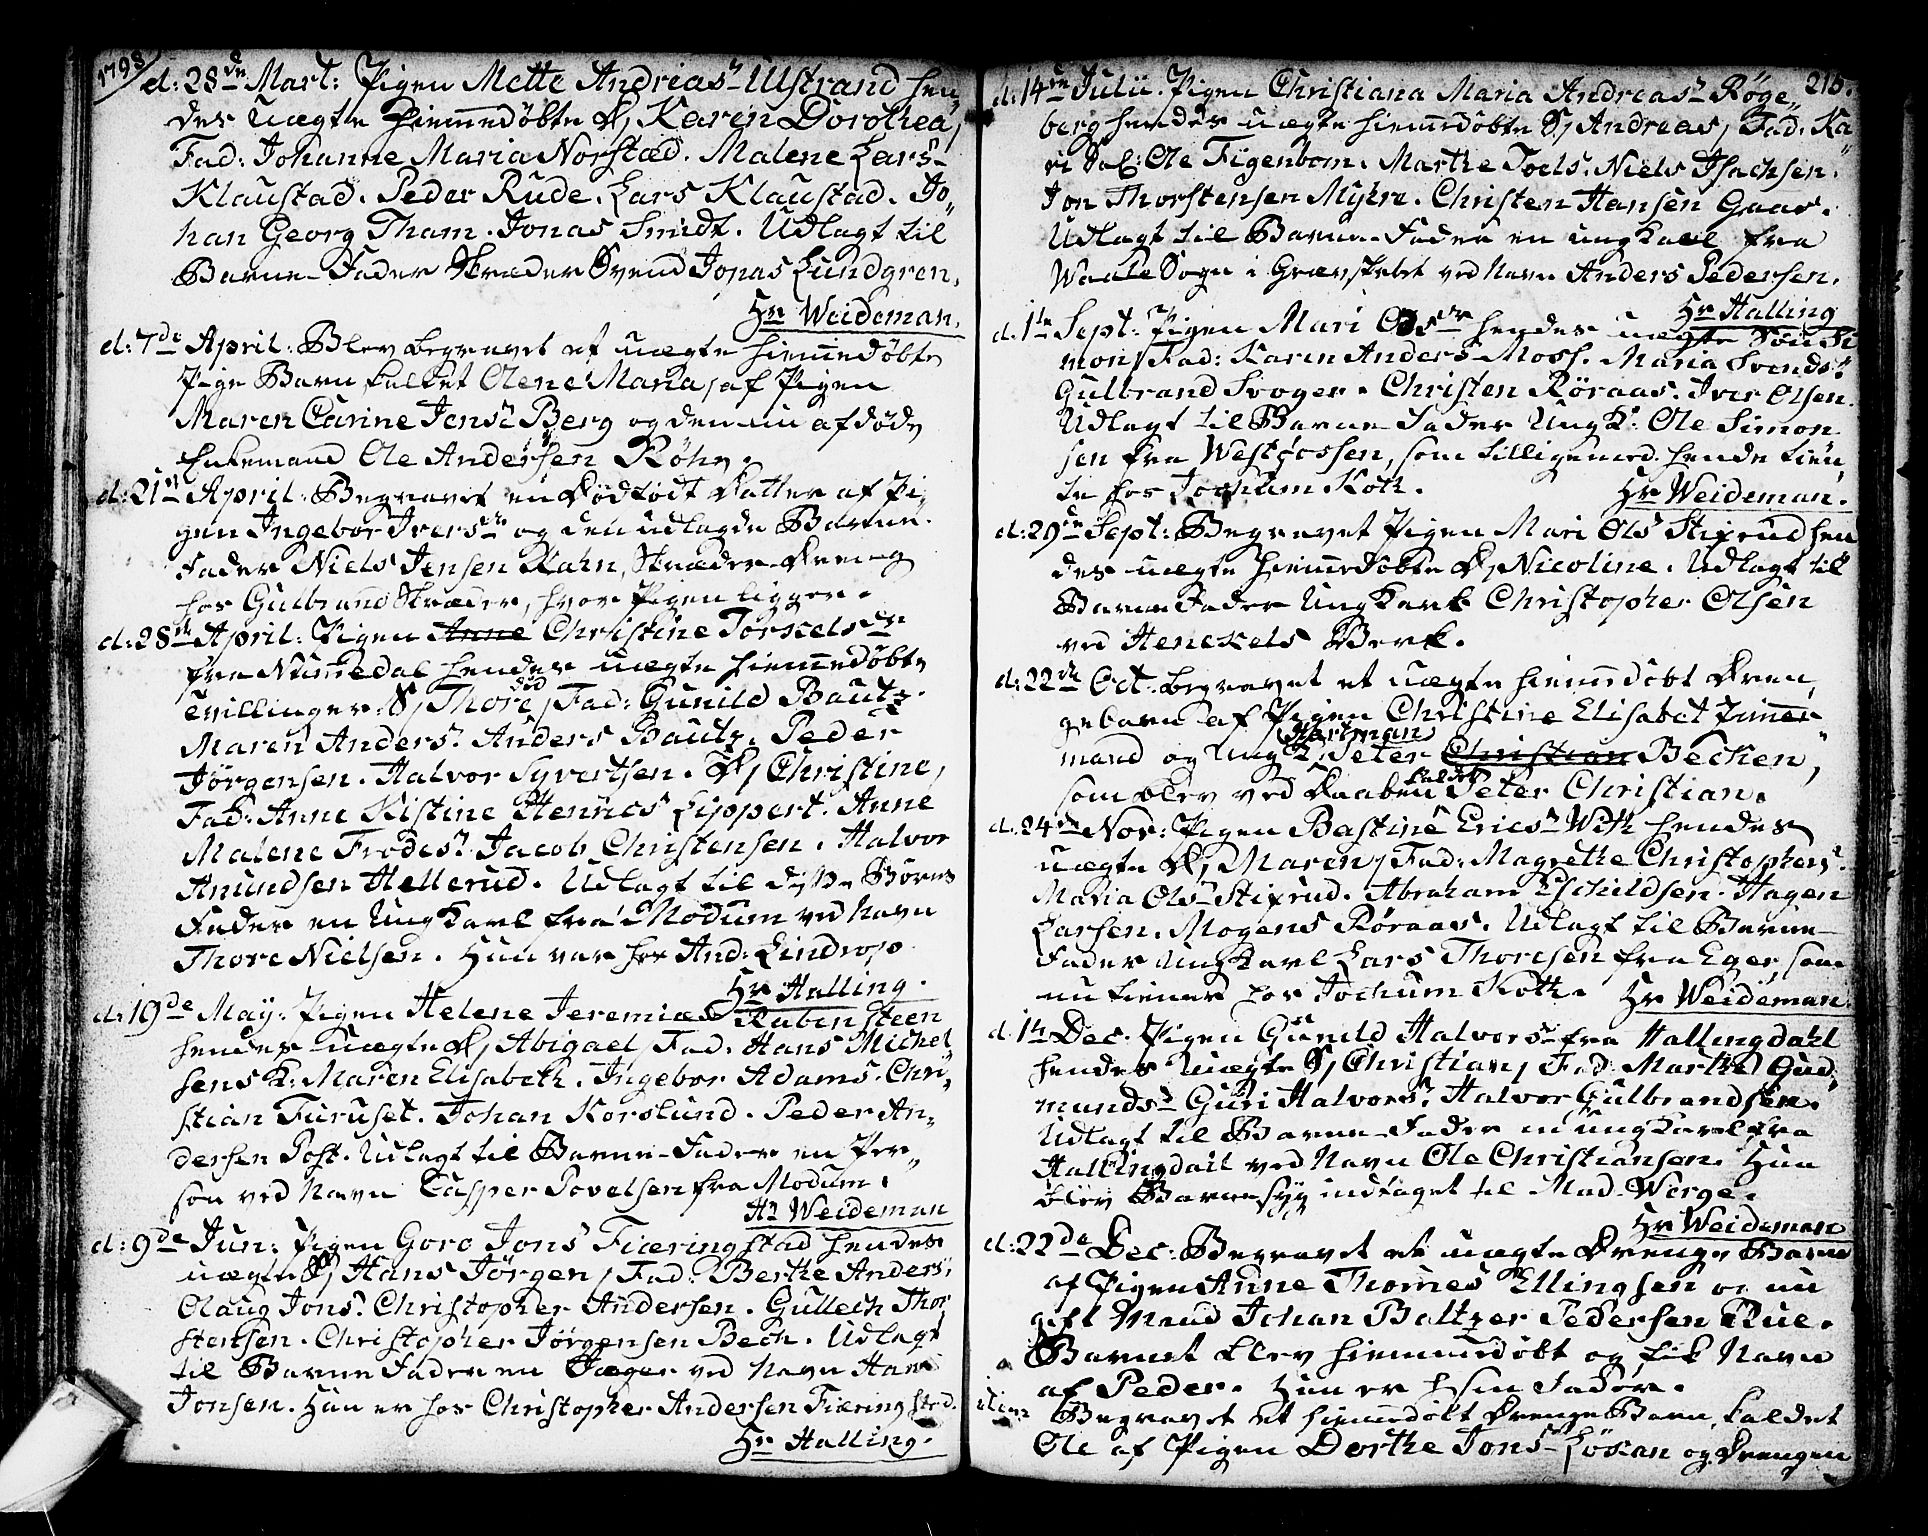 1798
d: 28de Mart: Pigen Mette Andreasdr Ulstrand hen„
des uægte hiemmedøbte D, Karen Dorothea,
Fad: Johanne Maria Norstæd. Malene Lars
Klaustad. Peder Rude. Lars Klaustad. Jo„
han Georg Tham. Jonas Smidt. Udlagt til
Barne-Fader Skræder Svend Jonas Lundgren,
Hr Weideman.
d: 7de April: Blev begravet et uægte hiemmedøbte
Pige Barn kaldet Olene Maria, af Pigen
Maren Carine Jensdr Berg og den nu afdøde
Enkemand Ole Andersen Røhn.
d: 21st April: Begravet en dødfødt Datter af Pi„
gen Ingebor Iversdr og den udlagde Barne-
Fader Niels Jensen Rahn, Skræder Dreng
hos Gulbrand Skræder, hvor Pigen ligger.
d: 28de April: Pigen Anne Christine Torkelsdr
fra Nummedal hendes uægte hiemmedøbte
tvillinger: S, Thore, Fad: Gunild Bautz.
Maren Anders. Anders Bautz. Peder
Jørgensen. Halvor Syvertsen. D, Christine,
Fad: Anne Kistine Henrics Lippert. Anne
Malene Frodesdr. Jacob Christensen. Halvor
Anundsen Hellerud. Udlagt til disse Børns
Fader en Ung Karl fra Modum ved Navn
Thore Nielsen. Hun var hos And: Lindrop
Hr Halling.
d: 19de May: Pigen Helene Jeremiæ Rubensteen
hendes uægte D, Abigael, Fad: Hans Michel„
sens K: Maren Elisabeth. Ingebor Adams. Chri„
stian Furuset. Johan Korslund. Peder An„
dersen Post. Udlagt til Barne-Fader en Per„
son ved Navn Casper Povelsen fra Modum.
Hr Weideman
d: 9de Jun: Pigen Goro Jons Fiæringstad hendes
uægte S, Hans Jørgen, Fad: Berthe Anders.
Olaug Jons. Christopher Andersen. Gullech Thor
stensen. Christopher Jørgensen Bech. Udlagt
til Barne Fader en Jæger ved Navn Hans
Jonsen. Hun er hos Christopher Andersen Fiæringstad.
Hr Halling.
215.
d: 14de Julii. Pigen Christiana Maria Andreasdr Røge„
berg hendes uægte hiemmedøbte S, Andreas, Fad: Ka„
ri Sal: Ole Figenbom. Marthe Joels. Niels Isachsen.
Jon Thorstensen Myhre. Christen Hansen Gaas.
Udlagt til Barne-Fader en ung Karl fra
Waale Sogn i Grævskabet ved Navn Anders Pedersen.
Hr Halling
d: 1te Sept: Pigen Mari Olsdr hendes uægte Søn Si
mon, Fad: Karen Anders Moss. Maria Svends.
Gulbrand Svoger. Christen Røraas. Iver Olsen.
Udlagt til Barne-Fader Ung K: Ole Simon
sen fra Westfossen, som tilligemed hende tien„
te hos Jochum Koth.
Hr Weideman.
d: 29de Sept: Begravet Pigen Mari Ols Stiprud hen
des uægte hiemmedøbte D, Nicoline. Udlagt til
Barne Fader Ung Karl Christopher Olsen
ved Henckels Verk.
d: 22de Oct: begravet et uægte hiemmedøbt Dren„
gebarn af Pigen Christine Elisabet Zimmer„
mand og Ung K, Peter Christian Hartman Becken,
som blev ved Daaben kaldet Peter Christian.
d: 24de Nov: Pigen Bastine Ericsdr With hendes
uægte D, Maren, Fad: Magrethe Christophers.
Maria Ols Stiprud. Abraham Eschildsen. Hagen
Larsen. Mogens Røraas. Udlagt til Barne-
Fader Ung Karl Lars Thoresen fra Eger, som
nu tiener hos Jochum Koth.
Hr Weideman.
d: 1te Dec: Pigen Gunild Halvorsdr fra Hallingdahl
hendes uægte S, Christian, Fad: Marthe Gud„
mundsdr Guri Halvors. Halvor Gulbrandsen.
Udlagt til Barne-Fader en ung Karl fra
Hallingdall ved Navn Ole Christiansen. Hun
blev Barnesyg indtaget til Mad. Werge.
Hr Weideman
d: 22de Dec: Begravet et uægte Drenge Barn
af Pigen Anne Thomes Ellingsen og nu
gift Mand Johan Baltzer Pedersen Rue.
Barnet blev hiemmedøbt og fik Navn
af Peder. Hun er hos sin Fader.
Begravet et hiemmedøbt Drenge Barn, kaldet
Ole af Pigen Dorthe Jons Løkan og Drengen